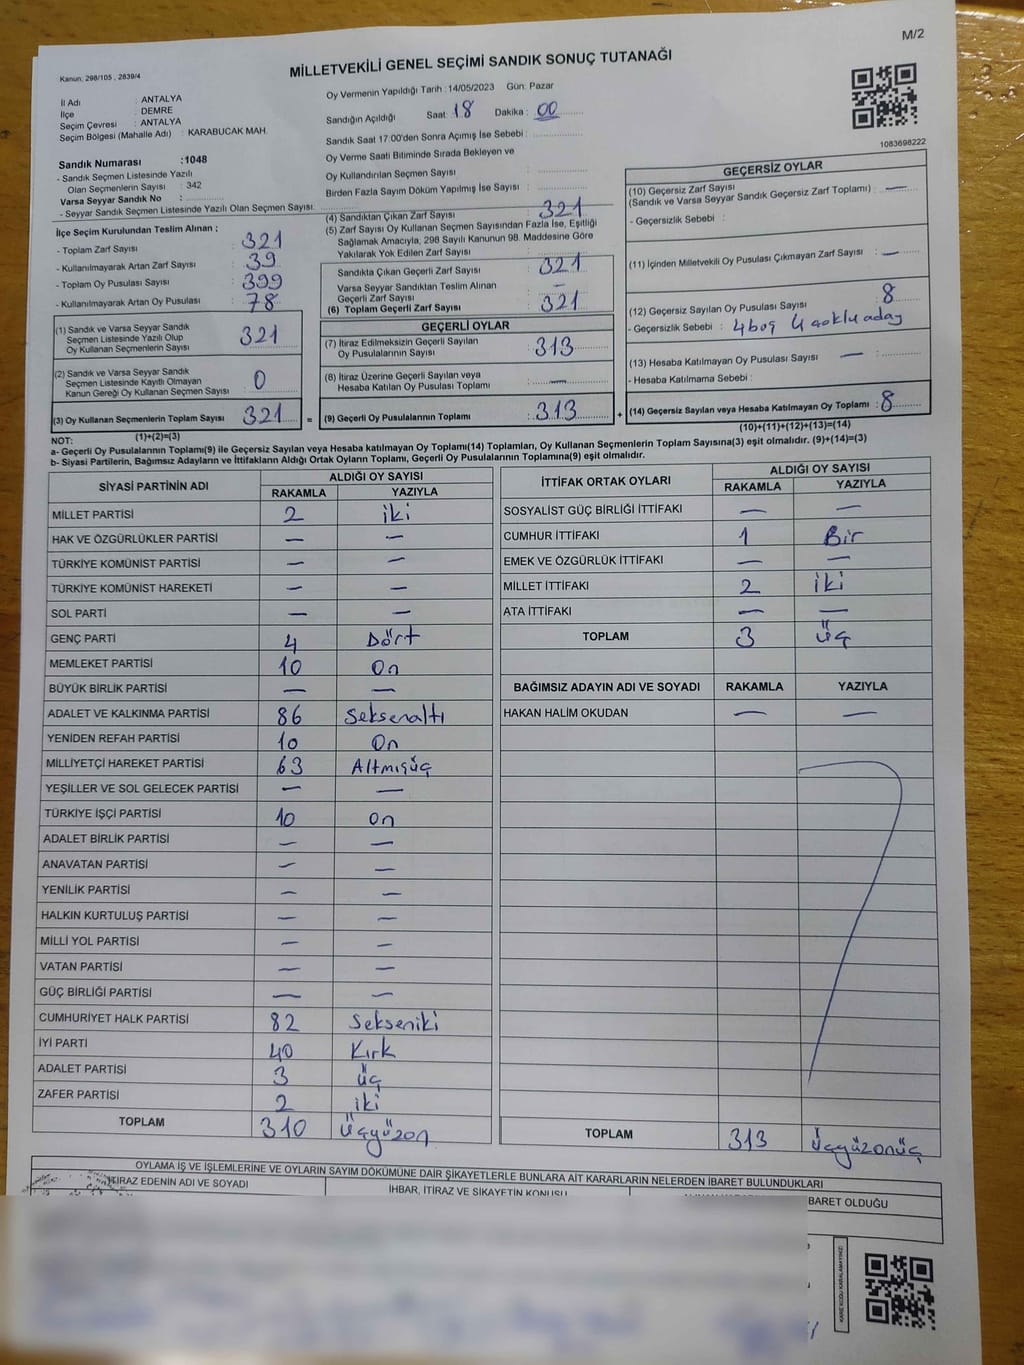 M/2
Kanun: 298/105 , 2839/4
MİLLETVEKİLİ GENEL SEÇİMİ SANDIK SONUÇ TUTANAĞI
İl Adı : ANTALYA
İlçe : DEMRE
Seçim Çevresi : ANTALYA
Seçim Bölgesi (Mahalle Adı) : KARABUCAK MAH.
Sandık Numarası :1048
- Sandık Seçmen Listesinde Yazılı
Olan Seçmenlerin Sayısı : 342
Varsa Seyyar Sandık No :
- Seyyar Sandık Seçmen Listesinde Yazılı Olan Seçmen Sayısı:
Oy Vermenin Yapıldığı Tarih : 14/05/2023 Gün: Pazar
Sandığın Açıldığı Saat: 18 Dakika : 00
Sandık Saat 17:00'den Sonra Açımış İse Sebebi :
Oy Verme Saati Bitiminde Sırada Bekleyen ve
Oy Kullandırılan Seçmen Sayısı :
Birden Fazla Sayım Döküm Yapılmış İse Sayısı :
1083698222
İlçe Seçim Kurulundan Teslim Alınan ;
- Toplam Zarf Sayısı : 321
- Kullanılmayarak Artan Zarf Sayısı : 39
- Toplam Oy Pusulası Sayısı : 399
- Kullanılmayarak Artan Oy Pusulası : 78
(1) Sandık ve Varsa Seyyar Sandık
Seçmen Listesinde Yazılı Olup
Oy Kullanan Seçmenlerin Sayısı : 321
(2) Sandık ve Varsa Seyyar Sandık
Seçmen Listesinde Kayıtlı Olmayan
Kanun Gereği Oy Kullanan Seçmen Sayısı : 0
(3) Oy Kullanan Seçmenlerin Toplam Sayısı : 321 =
(1)+(2)=(3)
(4) Sandıktan Çıkan Zarf Sayısı : 321
(5) Zarf Sayısı Oy Kullanan Seçmen Sayısından Fazla İse, Eşitliği
Sağlamak Amacıyla, 298 Sayılı Kanunun 98. Maddesine Göre
Yakılarak Yok Edilen Zarf Sayısı :
Sandıkta Çıkan Geçerli Zarf Sayısı : 321
Varsa Seyyar Sandıktan Teslim Alınan
Geçerli Zarf Sayısı : —
(6) Toplam Geçerli Zarf Sayısı : 321
GEÇERLİ OYLAR
(7) İtiraz Edilmeksizin Geçerli Sayılan
Oy Pusulalarının Sayısı : 313
(8) İtiraz Üzerine Geçerli Sayılan veya
Hesaba Katılan Oy Pusulası Toplamı : —
(9) Geçerli Oy Pusulalarının Toplamı : 313 +
GEÇERSİZ OYLAR
(10) Geçersiz Zarf Sayısı
(Sandık ve Varsa Seyyar Sandık Geçersiz Zarf Toplamı) : —
- Geçersizlik Sebebi :
(11) İçinden Milletvekili Oy Pusulası Çıkmayan Zarf Sayısı : —
(12) Geçersiz Sayılan Oy Pusulası Sayısı : 8
- Geçersizlik Sebebi : 4 boş 4 çoklu aday
(13) Hesaba Katılmayan Oy Pusulası Sayısı : —
- Hesaba Katılmama Sebebi :
(14) Geçersiz Sayılan veya Hesaba Katılmayan Oy Toplamı : 8
(10)+(11)+(12)+(13)=(14)
NOT:
a- Geçerli Oy Pusulalarının Toplamı(9) ile Geçersiz Sayılan veya Hesaba katılmayan Oy Toplamı(14) Toplamları, Oy Kullanan Seçmenlerin Toplam Sayısına(3) eşit olmalıdır. (9)+(14)=(3)
b- Siyasi Partilerin, Bağımsız Adayların ve İttifakların Aldığı Ortak Oyların Toplamı, Geçerli Oy Pusulalarının Toplamına(9) eşit olmalıdır.
SİYASİ PARTİNİN ADI ALDIĞI OY SAYISI
RAKAMLA YAZIYLA
MİLLET PARTİSİ 2 iki
HAK VE ÖZGÜRLÜKLER PARTİSİ — —
TÜRKİYE KOMÜNİST PARTİSİ — —
TÜRKİYE KOMÜNİST HAREKETİ — —
SOL PARTİ — —
GENÇ PARTİ 4 Dört
MEMLEKET PARTİSİ 10 On
BÜYÜK BİRLİK PARTİSİ — —
ADALET VE KALKINMA PARTİSİ 86 Seksenaltı
YENİDEN REFAH PARTİSİ 10 On
MİLLİYETÇİ HAREKET PARTİSİ 63 Altmışüç
YEŞİLLER VE SOL GELECEK PARTİSİ — —
TÜRKİYE İŞÇİ PARTİSİ 10 On
ADALET BİRLİK PARTİSİ — —
ANAVATAN PARTİSİ — —
YENİLİK PARTİSİ — —
HALKIN KURTULUŞ PARTİSİ — —
MİLLİ YOL PARTİSİ — —
VATAN PARTİSİ — —
GÜÇ BİRLİĞİ PARTİSİ — —
CUMHURİYET HALK PARTİSİ 82 Sekseniki
İYİ PARTİ 40 Kırk
ADALET PARTİSİ 3 üç
ZAFER PARTİSİ 2 iki
TOPLAM 310 üçyüzon
İTTİFAK ORTAK OYLARI ALDIĞI OY SAYISI
RAKAMLA YAZIYLA
SOSYALİST GÜÇ BİRLİĞİ İTTİFAKI — —
CUMHUR İTTİFAKI 1 Bir
EMEK VE ÖZGÜRLÜK İTTİFAKI — —
MİLLET İTTİFAKI 2 iki
ATA İTTİFAKI — —
TOPLAM 3 üç
BAĞIMSIZ ADAYIN ADI VE SOYADI RAKAMLA YAZIYLA
HAKAN HALİM OKUDAN — —
TOPLAM 313 üçyüzonüç
OYLAMA İŞ VE İŞLEMLERİNE VE OYLARIN SAYIM DÖKÜMÜNE DAİR ŞİKAYETLERLE BUNLARA AİT KARARLARIN NELERDEN İBARET BULUNDUKLARI
İTİRAZ EDENİN ADI VE SOYADI
İHBAR, İTİRAZ VE ŞİKAYETİN KONUSU
BARET OLDUĞU